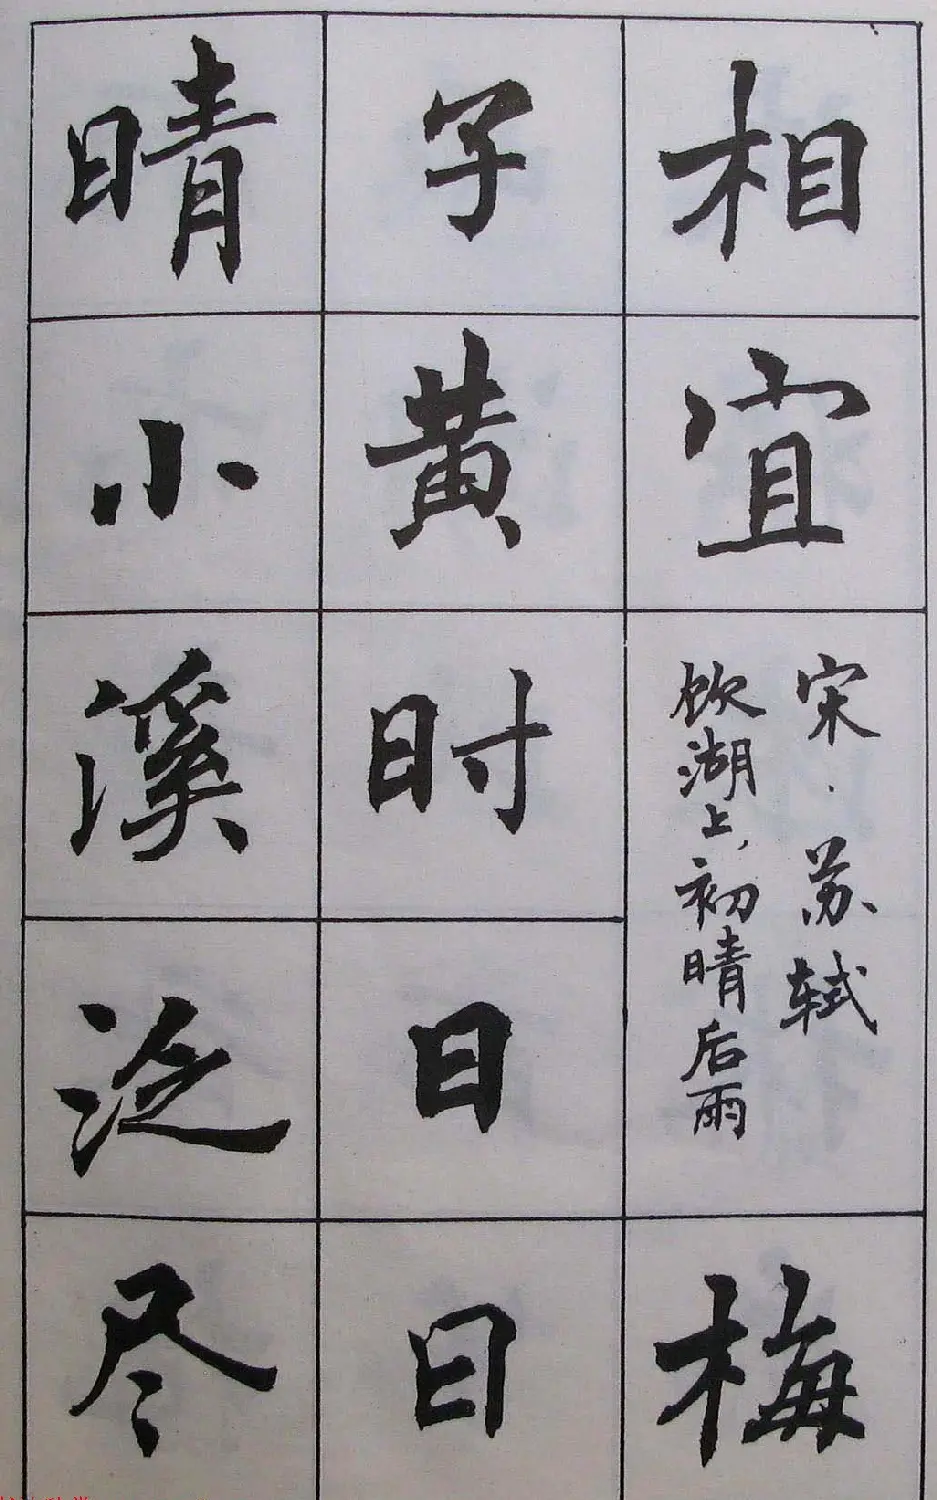 相宜
宋·苏轼
饮湖上，初晴后雨
梅
子黄时日日
晴小溪泛尽